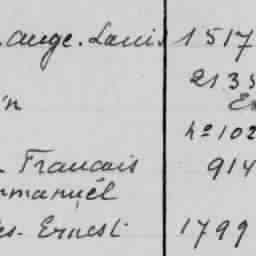 Ange. Louis 1517
2135
in
nº 102
François 914
mmanuel
es. Ernest 1799